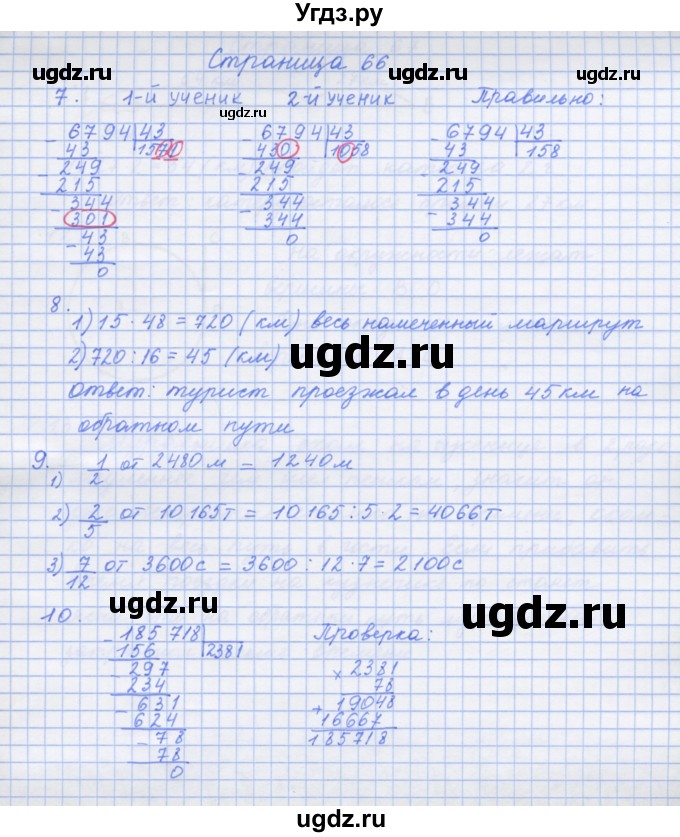 Угдз.ру
Страница 66
ugdz.ru ugdz.ru ugdz.ru
7. 1-й ученик 2-й ученик Правильно:
6794 | 43 6794 | 43 6794 | 43
43 1570 430 1058 43 158
249 249 249
215 215 215
344 344 344
301 344 344
43 0 0
43
0
8.
1) 15 · 48 = 720 (км) весь намеченный маршрут
2) 720 : 16 = 45 (км)
ugdz.ru
ответ: турист проезжал в день 45 км на
обратном пути
9.
1) 1/2 от 2480 м = 1240 м
2) 2/5 от 10 165 т = 10 165 : 5 · 2 = 4066 т
3) 7/12 от 3600 с = 3600 : 12 · 7 = 2100 с
ugdz.ru ugdz.ru
10.
185 718 Проверка:
156 2381
- 297 × 2381
234 78
- 631 + 19048
624 16667
- 78 185718
78
0
ugdz.ru ugdz.ru